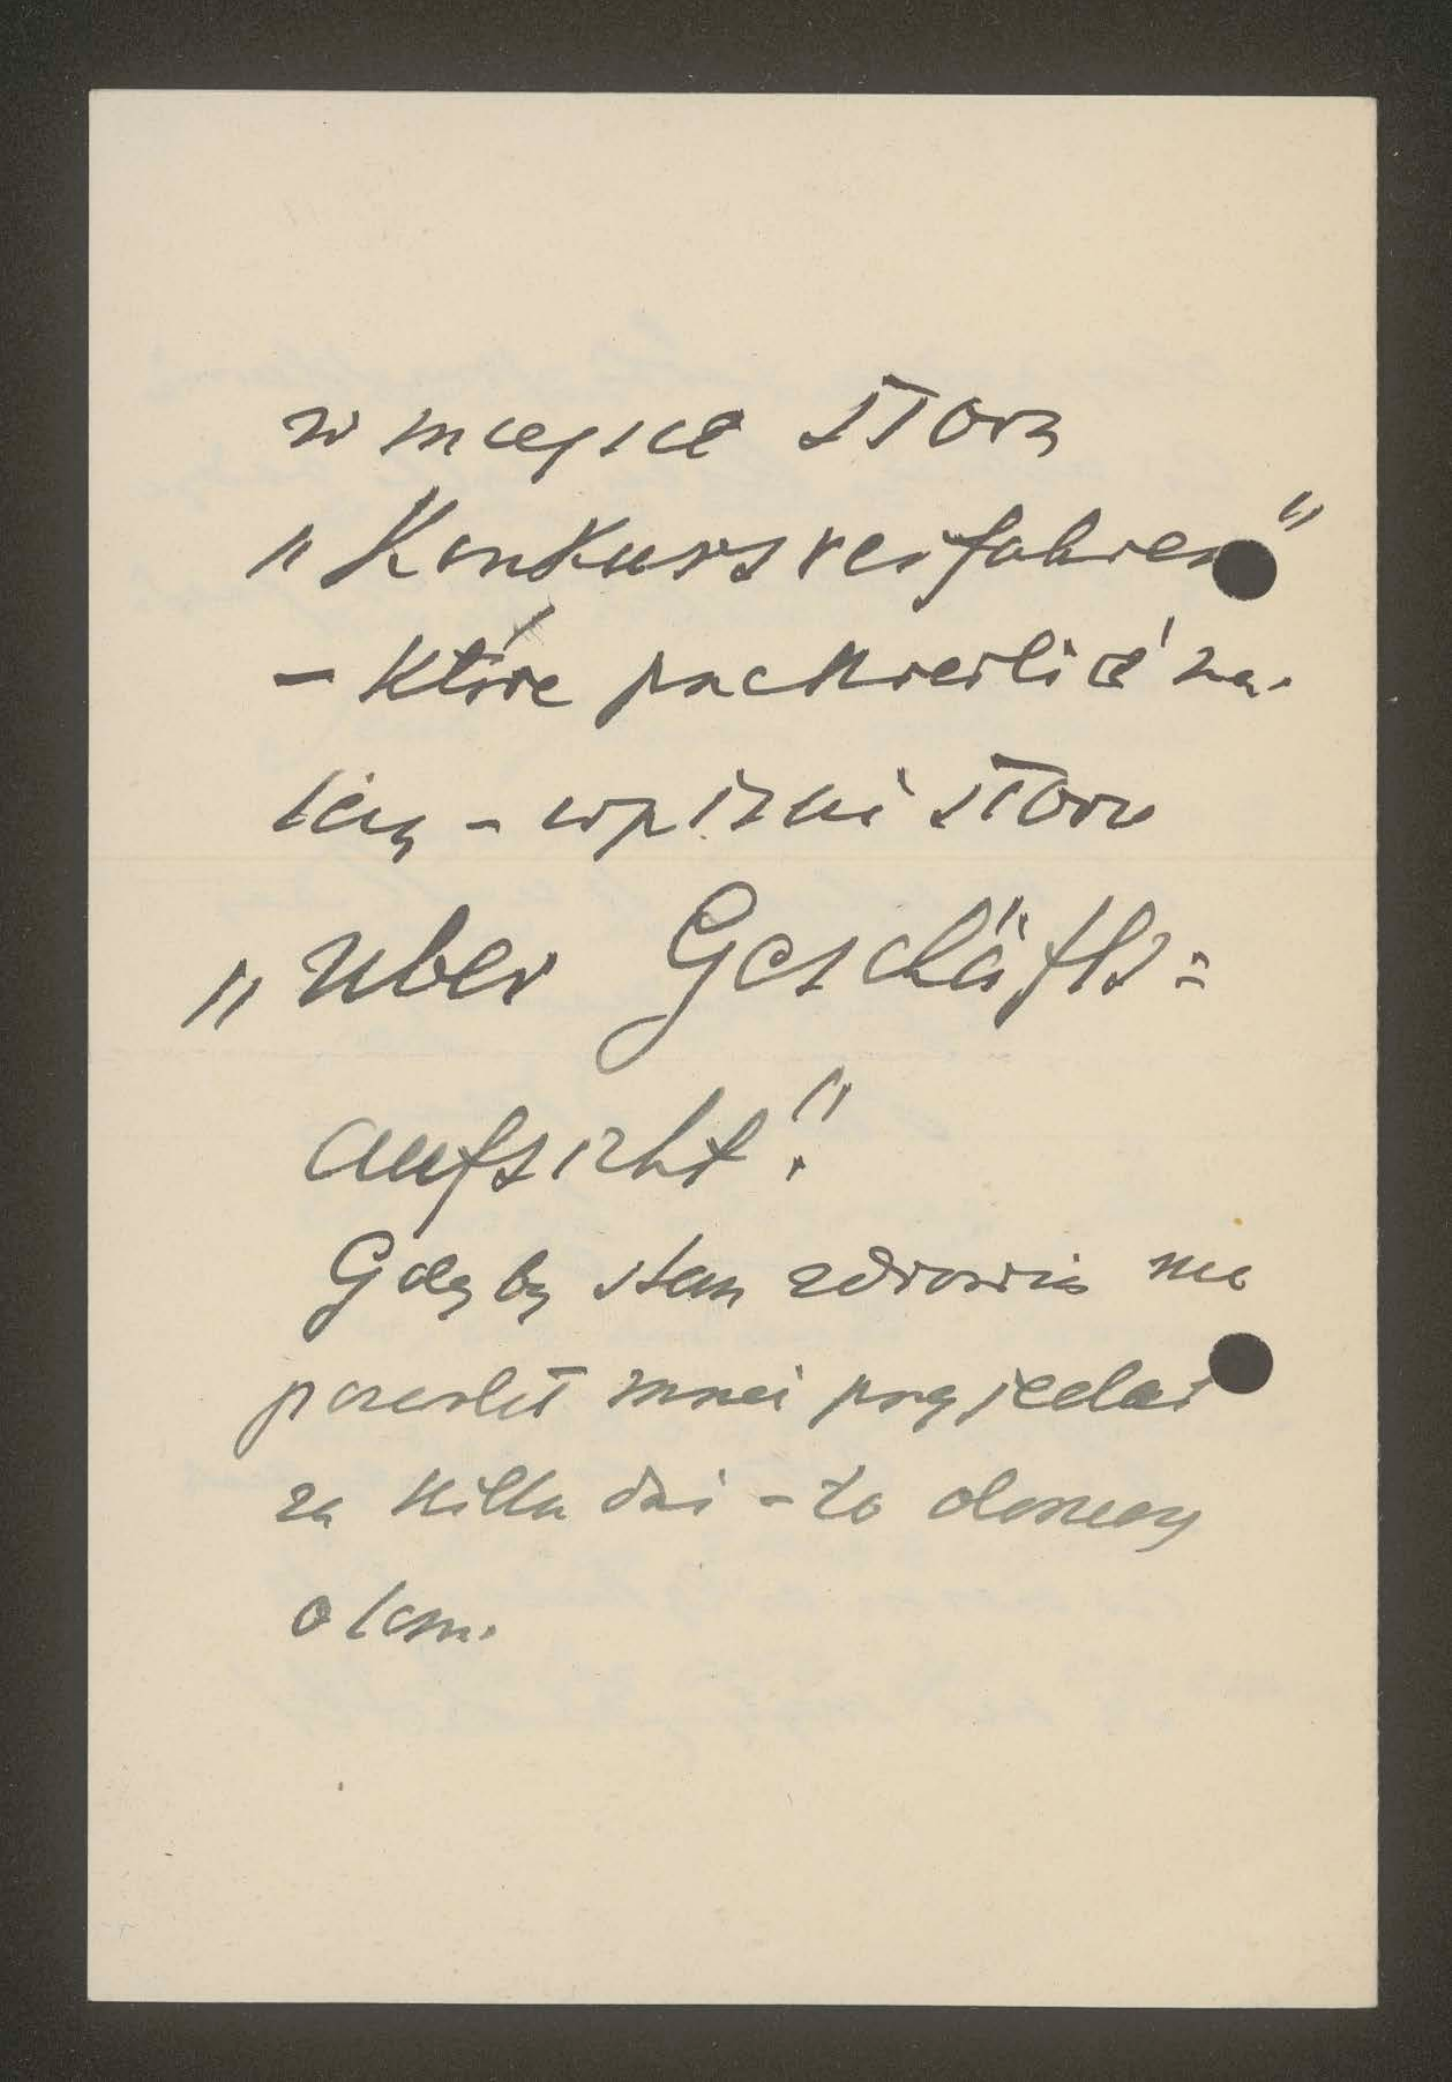 w miejsce słowa
„Konkursverfahren"
– które przekreślić na-
leży – wpisać słowa
„über Geschäfts=
aufsicht".
Gdyby stan zdrowia nie
pozwolił mnie przyjechać
za kilka dni – to doniosę
o tem.